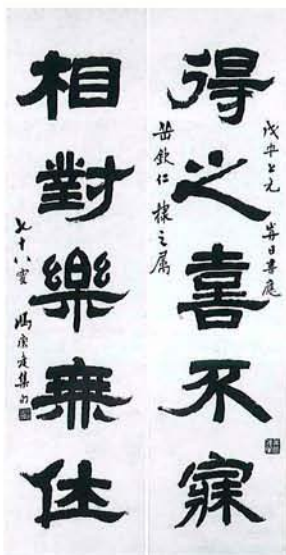 得之喜不寐
戊午上元日書應
岳欽仁棣之属
相對樂無
七十八叟 馮康侯集句